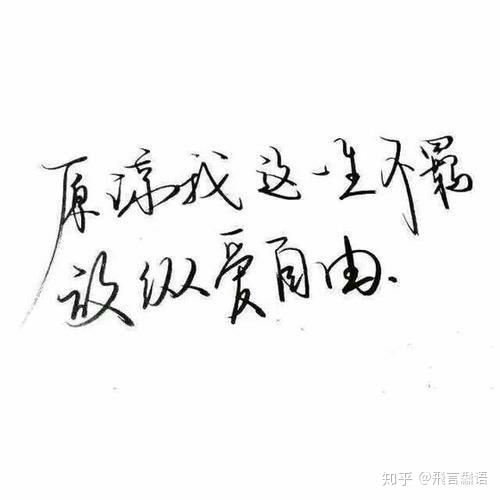 原谅我这一生不羁
放纵爱自由.
知乎 @飛言喬语